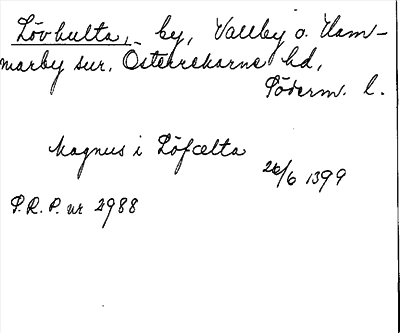 Lövhulta, by, Vallby o. Ham-
marby snr, Österrekarne hd,
Söderm. l.
Magnus i Löfœlta
26/6 1399
S.R.P. nr 2988